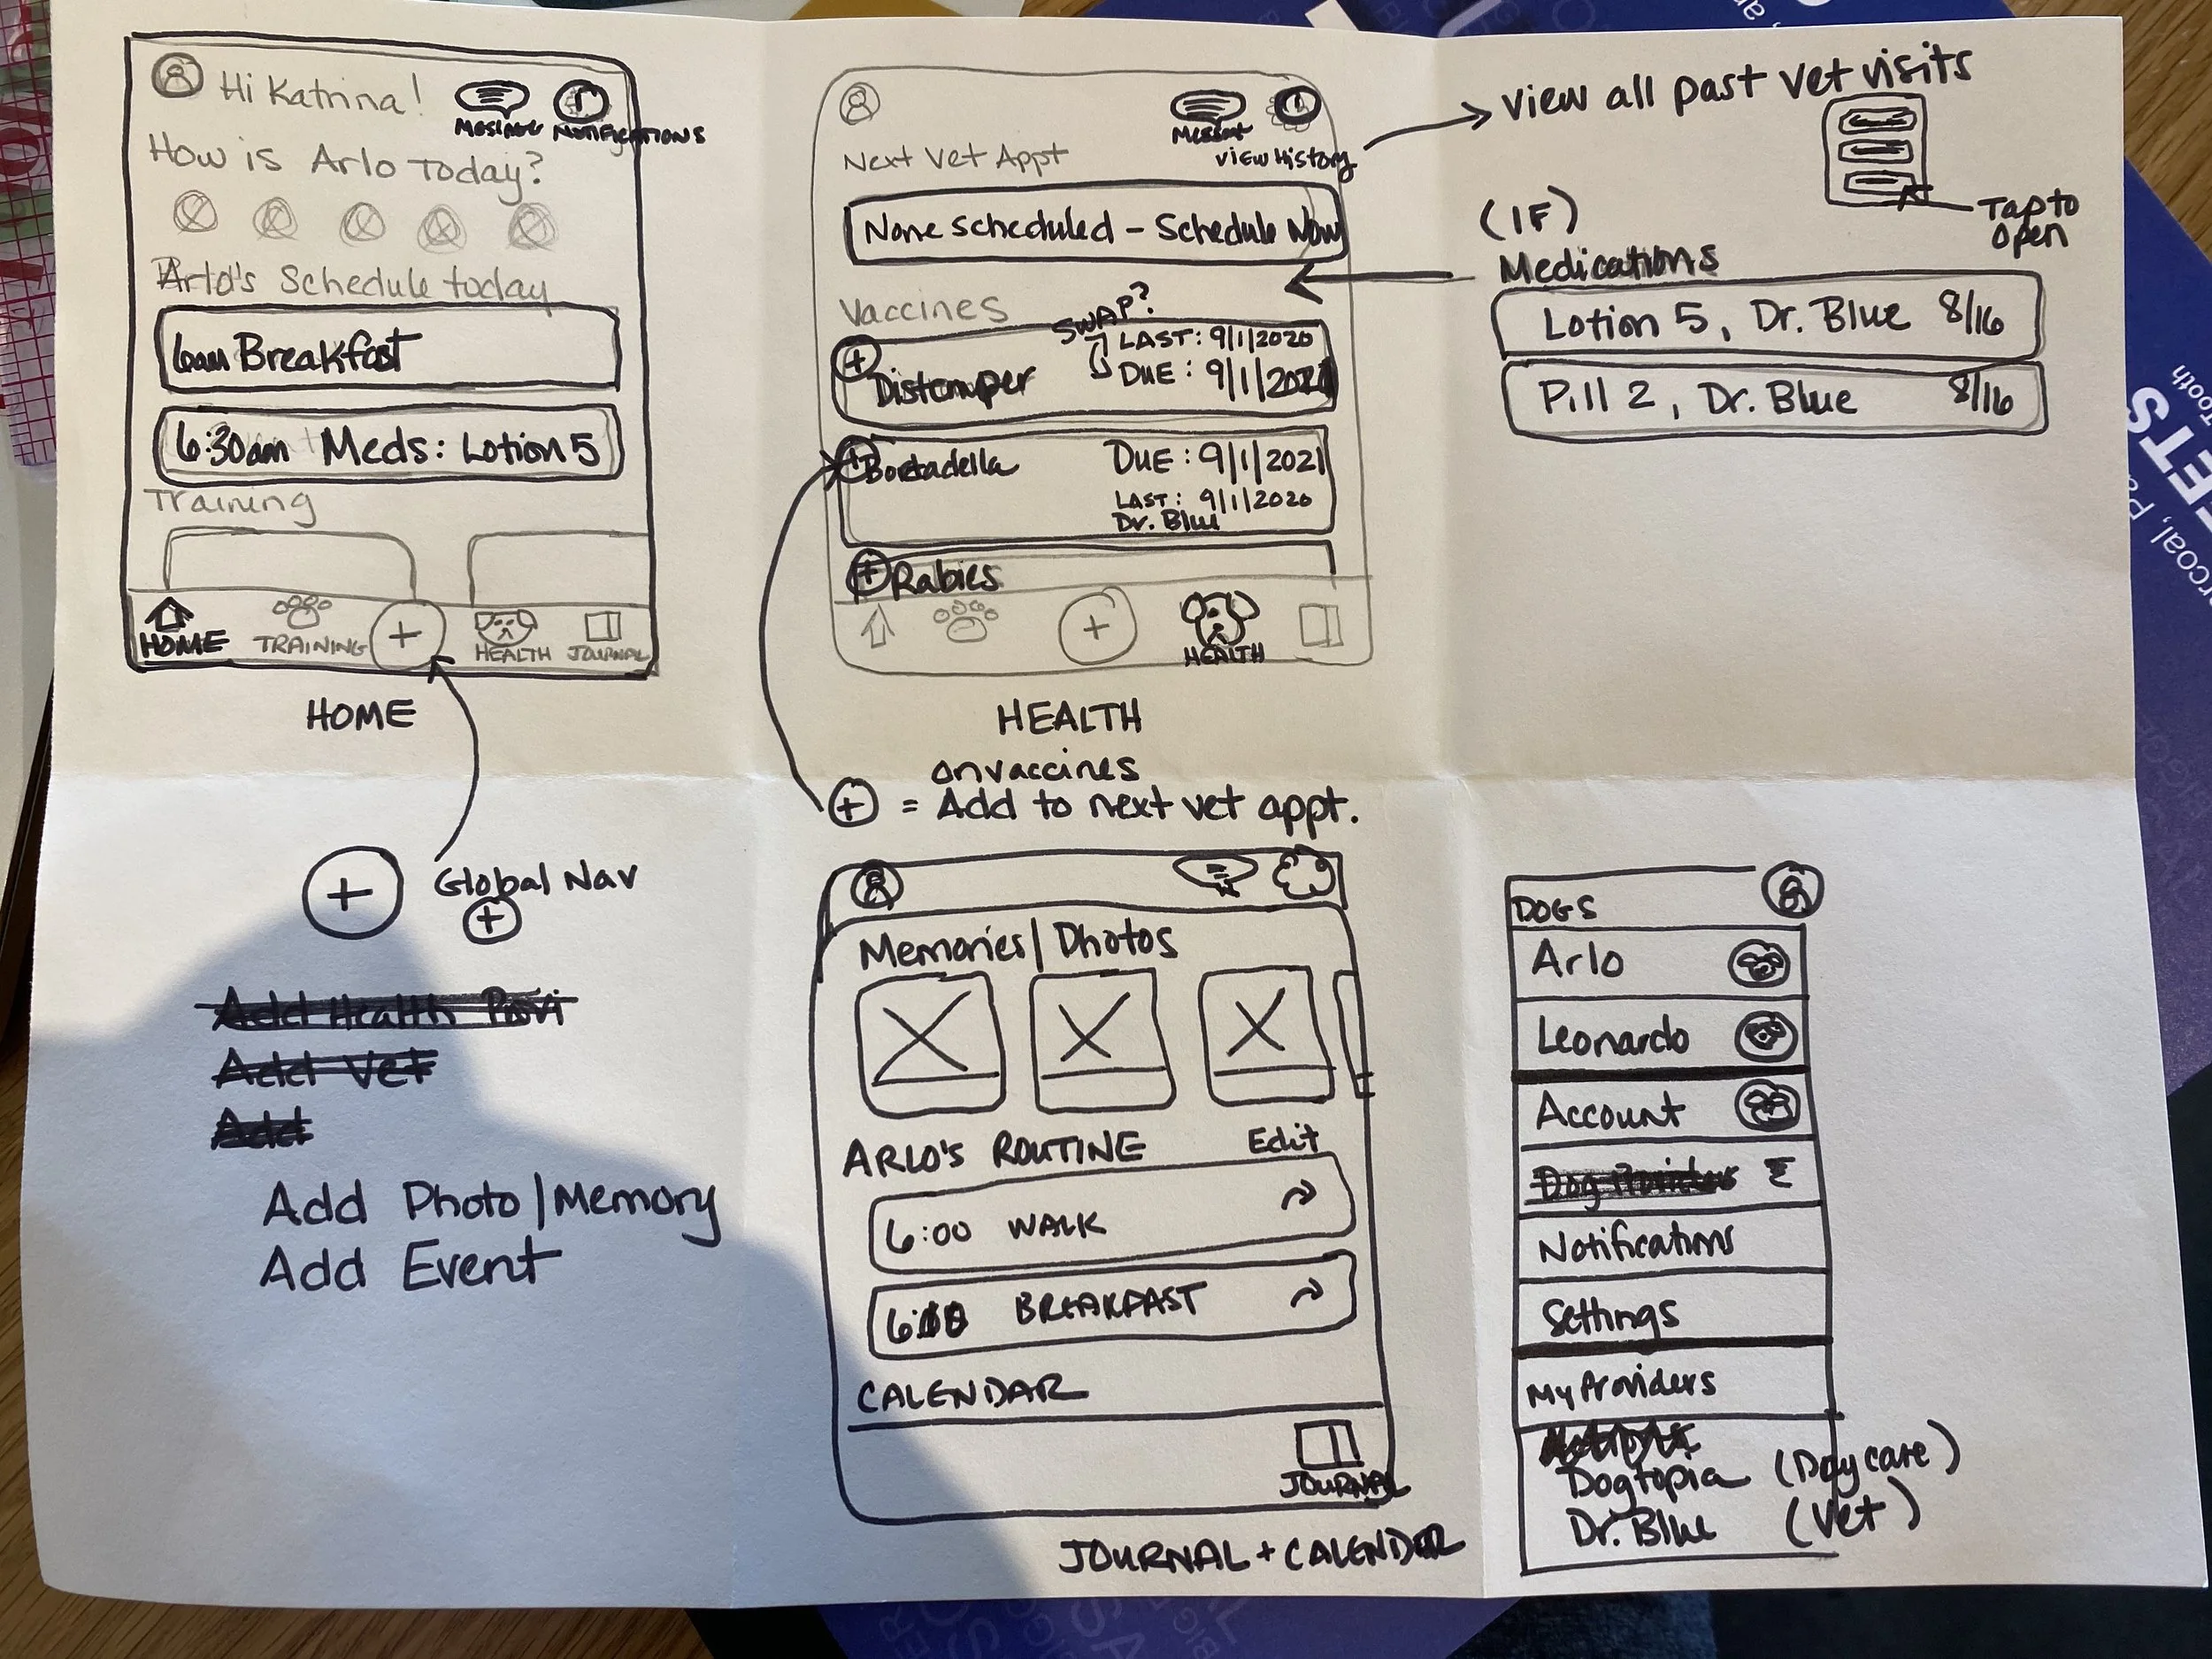 Hi Katrina!
Message Notifications
How is Arlo Today?
Arlo's Schedule today
6am Breakfast
6:30am Meds: Lotion 5
Training
HOME TRAINING + HEALTH JOURNAL
HOME
Message
View History
Next Vet Appt
None scheduled - Schedule Now
Vaccines
SWAP?
LAST: 9/1/2020
DUE: 9/1/2021
+ Distemper
+ Bortadella
DUE: 9/1/2021
LAST: 9/1/2020
Dr. Blue
+ Rabies
+
HEALTH
HEALTH
on vaccines
+ = Add to next vet appt.
View all past vet visits
Tap to
open
(IF)
Medications
Lotion 5, Dr. Blue 8/16
Pill 2, Dr. Blue 8/16
+ Global Nav
+
Add Health Provi
Add Vet
Add
Add Photo|Memory
Add Event
Memories|Photos
ARLO'S ROUTINE Edit
6:00 WALK
BREAKFAST
CALENDAR
JOURNAL
JOURNAL + CALENDER
DOGS
Arlo
Leonardo
Account
Notifications
Settings
My Providers
Dogtopia (Day care)
Dr. Blue (Vet)
ETS
Tooth